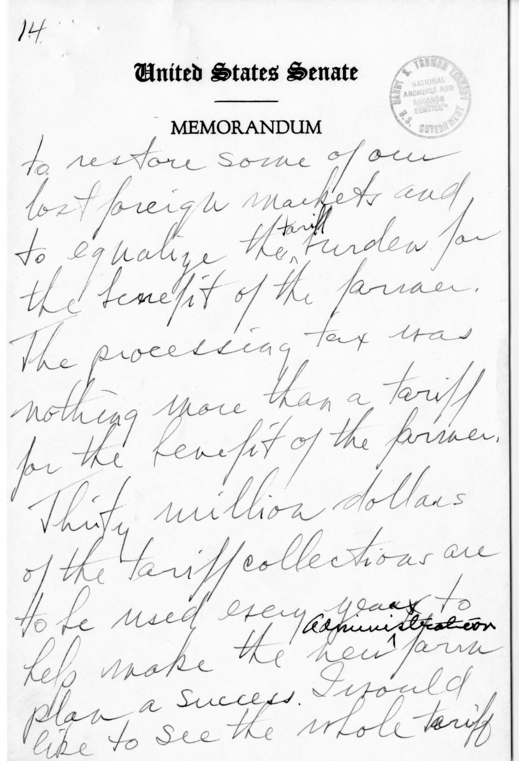 14
United States Senate
MEMORANDUM
HARRY S. TRUMAN LIBRARY
NATIONAL
ARCHIVES AND
RECORDS
SERVICE
U.S. GOVERNMENT
to restore some of our
lost foreign markets and
tariff
to equalize the burden for
the benefit of the farmer.
The processing tax was
nothing more than a tariff
for the benefit of the farmer.
Thirty million dollars
of the tariff collections are
to be used every year to
Administration
help make the new farm
plan a success. I would
like to see the whole tariff